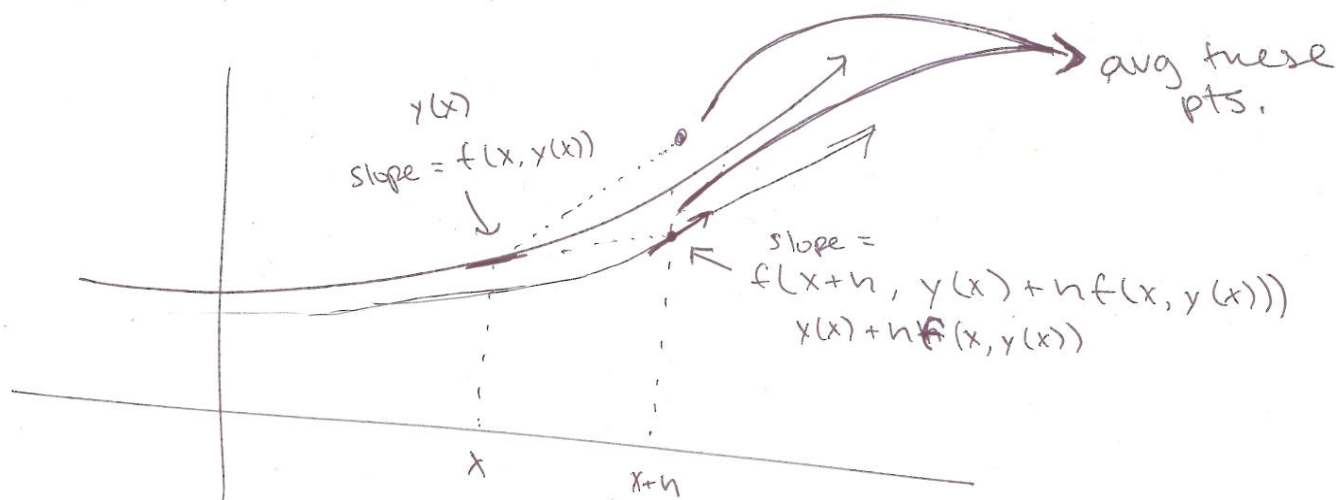 avg these
pts.
y(x)
slope = f(x, y(x))
slope =
f(x+h, y(x)+hf(x, y(x)))
y(x)+hf(x, y(x))
x
x+h